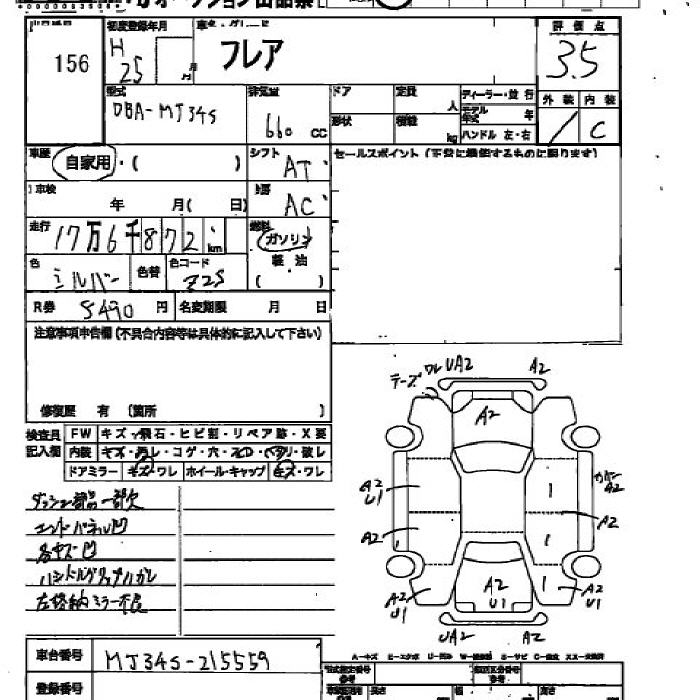 初度登録年月
車名・グレード
評価点
156
H
25
月
フレア
3.5
型式
DBA-MJ34S
排気量
660 CC
ドア
定員
人
形状
積載
kg
ディーラー・並行
モデル年式 年
ハンドル 左・右
外装 内装
C
車歴
自家用・( )
シフト
AT
セールスポイント (正常に機能するものに限ります)
車検
年 月( 日)
AC
走行
17万6千872 km
燃料
ガソリン
軽油
( )
色
シルバー
色替
色コード
Z2S
R券
8490 円
名変期限 月 日
注意事項申告欄(不具合内容等は具体的に記入して下さい)
修復歴 有 〔箇所 〕
検査員記入欄
FW キズ・飛石・ヒビ割・リペア跡・X要
内装
ドアミラー キズ・ワレ ホイール・キャップ キズ・ワレ
ダッシュ部品一部欠
エンドパネル凹
各キズ凹
ハンドルグリップハガレ
左格納ミラー不良
テープ
ワレ UA2
A2
A2
A2
U1
A2
カバー
A2
A2
A2
U1
A2
U1
A2
U1
UA2
A2
車台番号
MJ34S-215559
登録番号